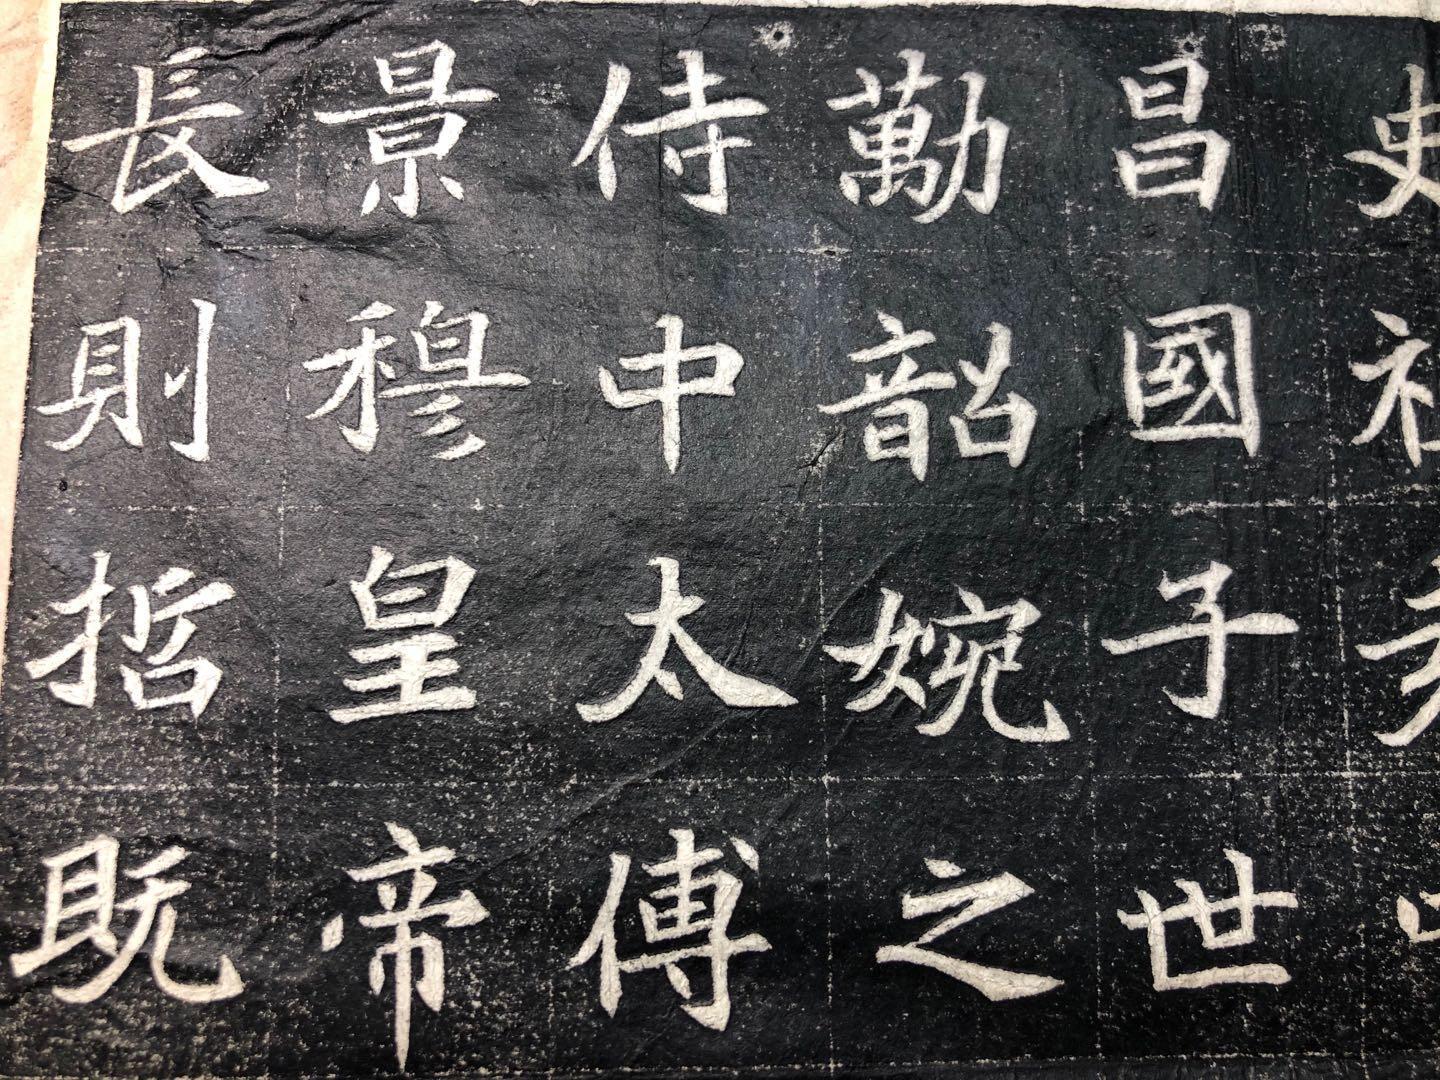 昌國子世
勱韶婉之
侍中太傅
景穆皇帝
長則哲既